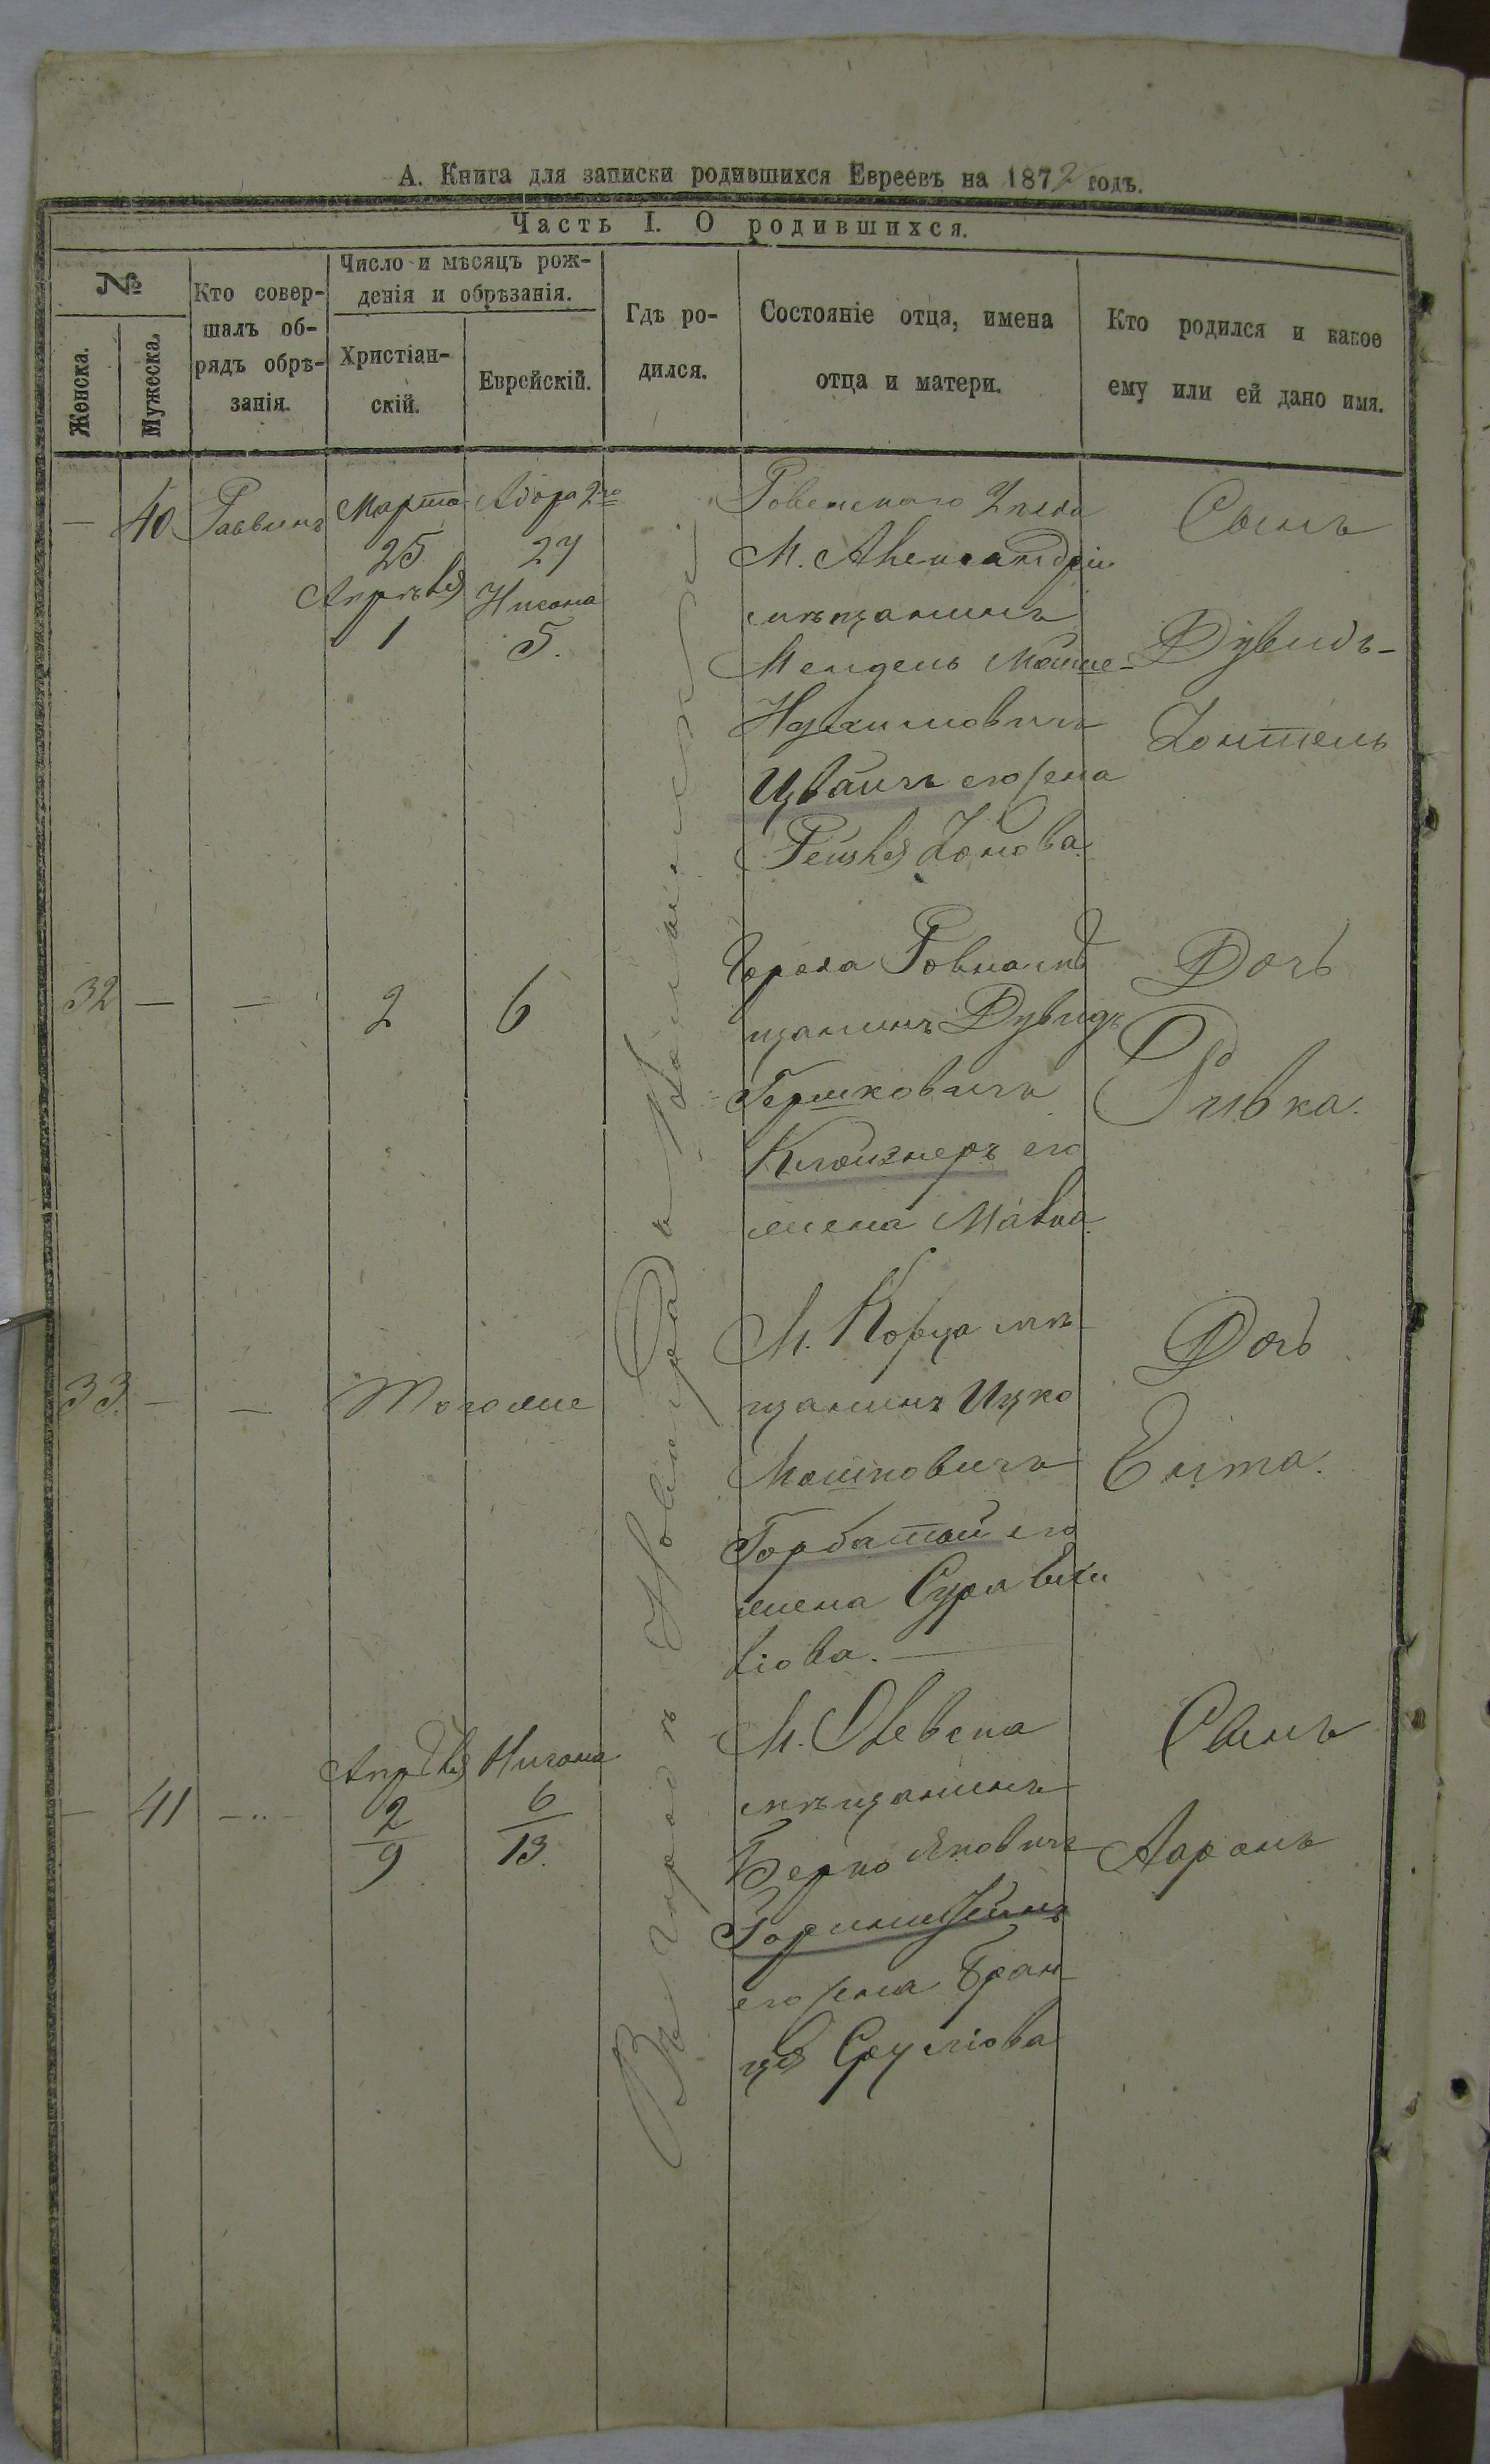 А. Книга для записки родившихся Евреевъ на 1872 годъ.
Часть I. О родившихся.
№
Женска.
Мужеска.
Кто совер-
шалъ об-
рядъ обрѣ-
занія.
Число и мѣсяцъ рож-
денія и обрѣзанія.
Христіан-
скій.
Еврейскій.
Гдѣ ро-
дился.
Состояніе отца, имена
отца и матери.
Кто родился и какое
ему или ей дано имя.
— 40 Раввинъ
Марта
25
Апрѣля
1
Адора 2го
27
Нисона
5.
Въ городѣ Новоградъ
Ровенскаго Уѣзда
М. Александріи
мѣщанинъ
Мендель Мошко-
Нухимовичъ
Цвайгъ его жена
Рейзля
Сынъ
Дувидъ-
32 — — 2 6
Города Ровна мѣ
щанинъ Дувидъ
Гершковичъ
Клейнеръ его
жена Малка
Дочь
Ривка.
33. — — Тогоже
М. Корца мѣ-
щанинъ Ицко
Мошковичъ
Горбатый его
жена Сура
Дочь
Ента.
— 41 —··—
Апрѣля
2
9
Нисона
6
13.
М. Олевска
мѣщанинъ
Берко Янковичъ
его жена Бран-
ця Сруліова
Сынъ
Ааронъ